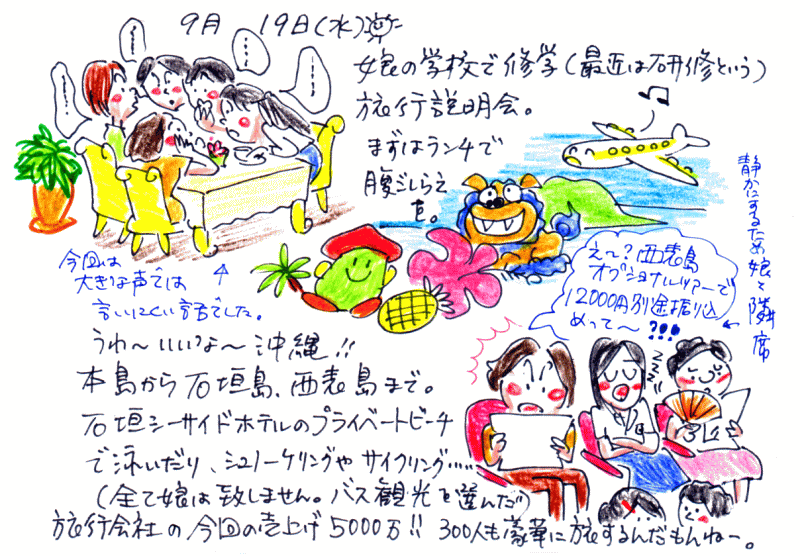 9月 19日(水)
娘の学校で修学(最近は研修という)
旅行説明会。
まずはランチで
腹ごしらえ
を。
今回は
大きな声では
言いにくい話でした。
静かにするため娘と隣席
え〜?西表島
オプショナルツアーで
12000円別途振り込
めって〜???!!
ZZZ
うわ〜いいな〜沖縄!!
本島から石垣島、西表島まで。
石垣シーサイドホテルのプライベートビーチ
で泳いだり、シュノーケリングやサイクリング……
(全て娘は致しません。バス観光を選んだ)
旅行会社の今回の売上げ5000万!! 300人も豪華に旅するんだもんねー。